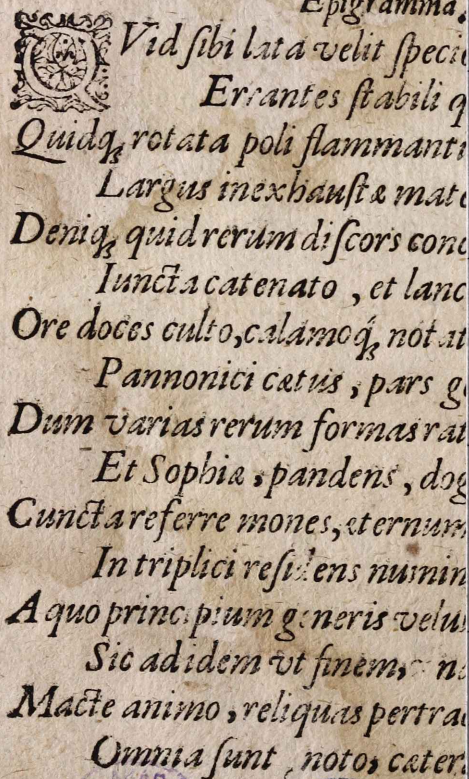 Epigramma,
QVid ſibi lata velit ſpecie
Errantes ſtabili q
Quidq́; rotata poli flammanti
Largus inexhauſtæ mate
Deniq́; quid rerum diſcors conc
Iuncta catenato , et lanc
Ore doces culto, calamoq́; notat
Pannonici cætus , pars g
Dum varias rerum formas rat
Et Sophiæ , pandens , dog
Cuncta referre mones, æternum
In triplici reſidens numin
A quo principium generis velu
Sic ad idem vt finem,
Macte animo , reliquas pertrac
Omnia ſunt notos cæter